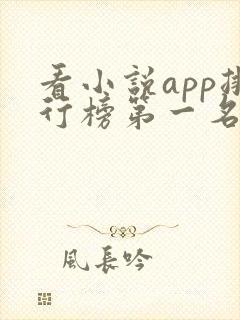 看小説app排
行榜第一名
風長吟